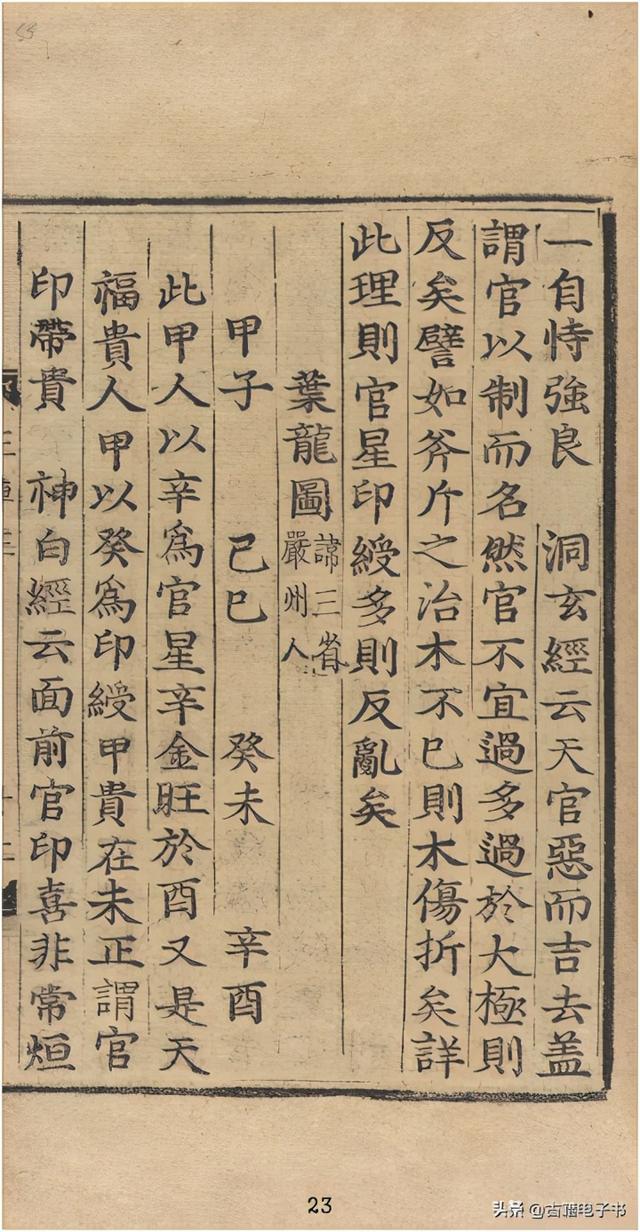 一自恃強良 洞玄經云天官惡而吉去盖
謂官以制而名然官不宜過多過於大極則
反矣譬如斧斤之治木不已則木傷折矣詳
此理則官星印綬多則反亂矣
葉龍圖 諱三省
嚴州人
甲子 己巳 癸未 辛酉
此甲人以辛爲官星辛金旺於酉又是天
福貴人甲以癸爲印綬甲貴在未正謂官
印帶貴 神白經云面前官印喜非常烜
23
头条@古籍电子书